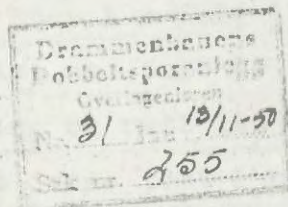 Drammenbanens
Dobbeltsporanlegg
Overingeniøren
No. 31 Jnr. 13/11-50
Sak nr. 255